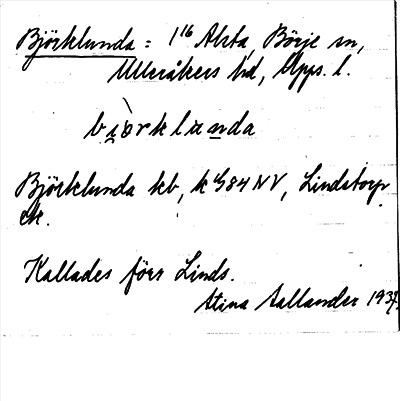 Björklunda : 1¹⁶ Alsta, Börje sn,
Ulleråkers hd, Upps. l.
bi̯òrklu̶nda
Björklunda kb, k G84 NV, Lindstorp
ek.
Kallades förr Linds.
Stina Sallander 1937.